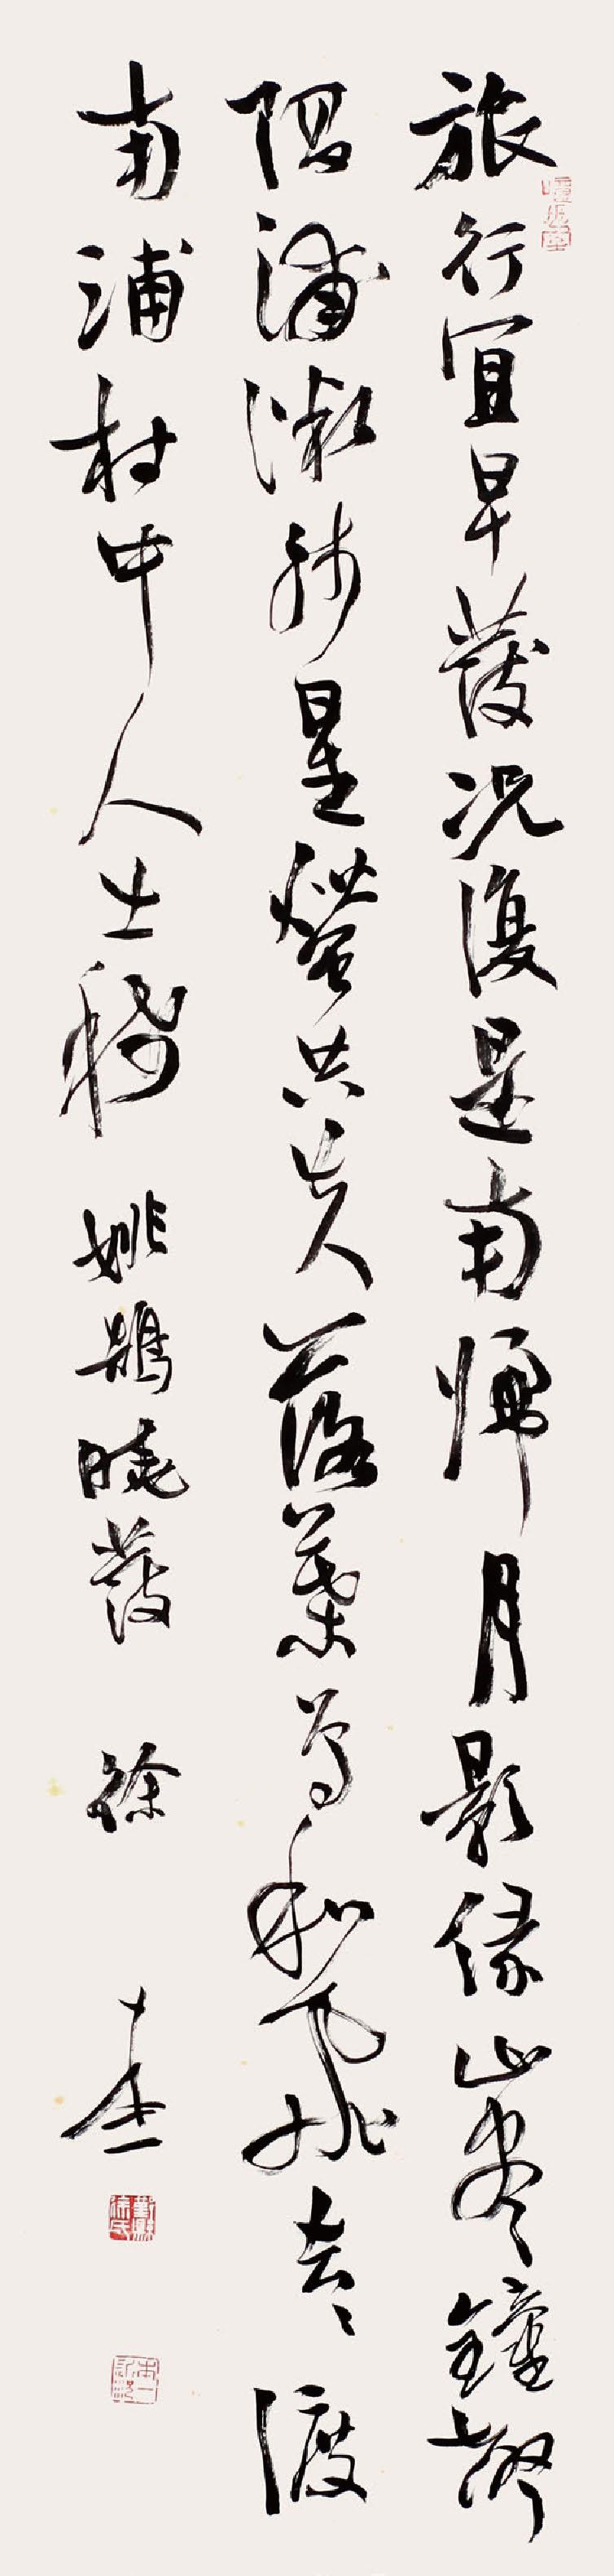 旅行宜早發況復是南歸月影緣山盡鐘聲
隔浦微殘星螢共失落葉鳥和飛去〻渡
南浦村中人出稀 姚鵠曉發 徐